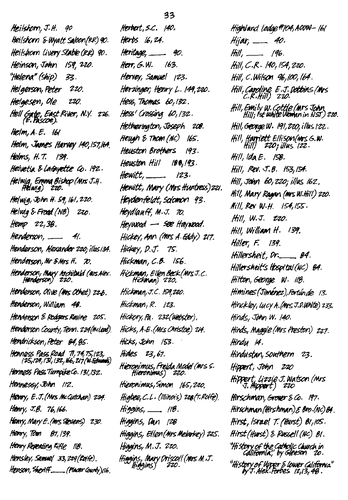 33
Heilshorn, J.H. 90
Heilshorn & Wyatt Saloon (KR) 90.
Heilshorn Livery Stable (KR) 90.
Heinson, John 159, 220.
"Helena" (ship) 33.
Helgerson, Peter 220.
Helgesen, Ole 220.
Hell Gate, East River, N.Y. 226
Helm, A.E. 161
Helm, James Harvey 140, 157, 169,
Helms, H.T. 139.
Helvetia & Lafayette Co. 192.
Helwig, Emma Bishop (Mrs J.H.
Helwig) 220.
Helwig, John H. 59, 161, 220.
Helwig & Frood (NB) 220.
Hemp 22, 38.
Henderson, 41.
Henderson, Alexander 220; illus. 134.
Henderson, Mr & Mrs H. 70.
Henderson, Mary Archibald (Mrs. Alex
Henderson) 220.
Henderson, Olive (Mrs. Othet) 226.
Henderson, William 48.
Henderson & Rodgers Ravine 205.
Henderson County, Tenn.
Hendrickson, Peter 84, 85.
Henness Pass Road
Henness Pass Turnpike Co. 131, 132.
Hennessy, John 112.
Henry, E.J. (Mrs. McCutchan) 224.
Henry, J.B. 76, 166.
Henry, Mary E. (Mrs Stevens) 230.
Henry, Thom 87, 139.
Henry Repeating Rifle 118.
Hensley, Samuel
Henson, Sheriff
Herbert, S.C. 140.
Herbs 16, 24.
Heritage, 90.
Herr, G.W. 163.
Hervey, Samuel 123.
Herzinger, Henry L. 149, 220.
Hess, Thomas 60, 132.
Hess' Crossing 60, 132.
Hetherington, Joseph 208.
Heugh & Thom (NC) 165.
Houston Brothers 193.
Houston Hill 188, 193.
Hewitt, 123.
Hewitt, Mary (Mrs Huntress) 221.
Heydenfeldt, Solomon 93.
Heydlauff, M.J. 70.
Heywood — See Haywood.
Hickey, Ann (Mrs A. Eddy) 217.
Hickey, D.J. 75.
Hickman, C.B. 156.
Hickman, Ellen Beck (Mrs J.C.
Hickman) 220.
Hickman, J.C. 159, 220.
Hickman, R. 123.
Hickory, Pa. 232 (Webster).
Hicks, A.E. (Mrs Christie) 214.
Hicks, John 153.
Hides 23, 67.
Hieronimus, Freida Model (Mrs S.
Hieronimus) 220.
Hieronimus, Simon 165, 220.
Higbee, C.L. (Illinois)
Higgins, 118.
Higgins, Dan 128
Higgins, Ellen (Mrs Meharkey) 225.
Higgins, M.J. 220.
Higgins, Mary Driscoll (Mrs M.J.
Higgins) 220.
Highland Lodge #104, AOUW — 161
Hijar, 40.
Hill, 196.
Hill, C.R. 140, 154, 220.
Hill, C. Wilson 96, 100, 164.
Hill, Caroline E.J. Dobbins (Mrs
C.R. Hill) 220.
Hill, Emily W. Cottle (Mrs John
Hill; 1st white woman in NSJ) 220.
Hill, George W. 191, 220; illus. 122.
Hill, Harriett Ellison (Mrs G.W.
Hill) 220; illus. 122.
Hill, Ida E. 158.
Hill, Rev. J.B. 153, 154.
Hill, John 60, 220; illus. 162.
Hill, Mary Ragan (Mrs. W. Hill) 220.
Hill, Rev W.H. 154, 155.
Hill, W.J. 220.
Hill, William H. 139.
Hiller, F. 139.
Hillershuit, Dr. 84.
Hillershuit's Hospital (NC) 84.
Hilton, George W. 118.
Himines (Jiminez), Forlinde 13.
Hinckley, Lucy A. (Mrs J.D. White) 232.
Hinds, John W. 140.
Hinds, Maggie (Mrs Preston) 227.
Hindu 14.
Hindustan, Southern 23.
Hippert, John 220
Hippert, Lizzie J. Watson (Mrs
J. Hippert) 220
Hirschman, Grover & Co. 197.
Hirschman (Hirshman) & Bro. (NC) 84.
Hirst, Israel T. (Hurst) 81, 105.
Hirst (Hurst) & Russell (NC) 81.
"History of the Catholic Church in
California," by Gleeson 20.
"History of Upper & Lower California"
by T. Alex. Forbes 12, 13, 48.